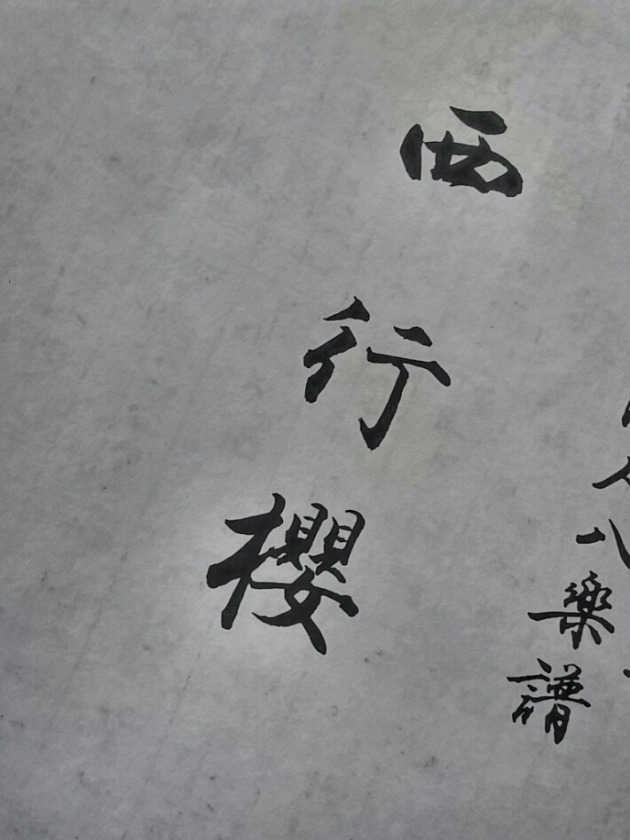 尺八樂譜
西行櫻